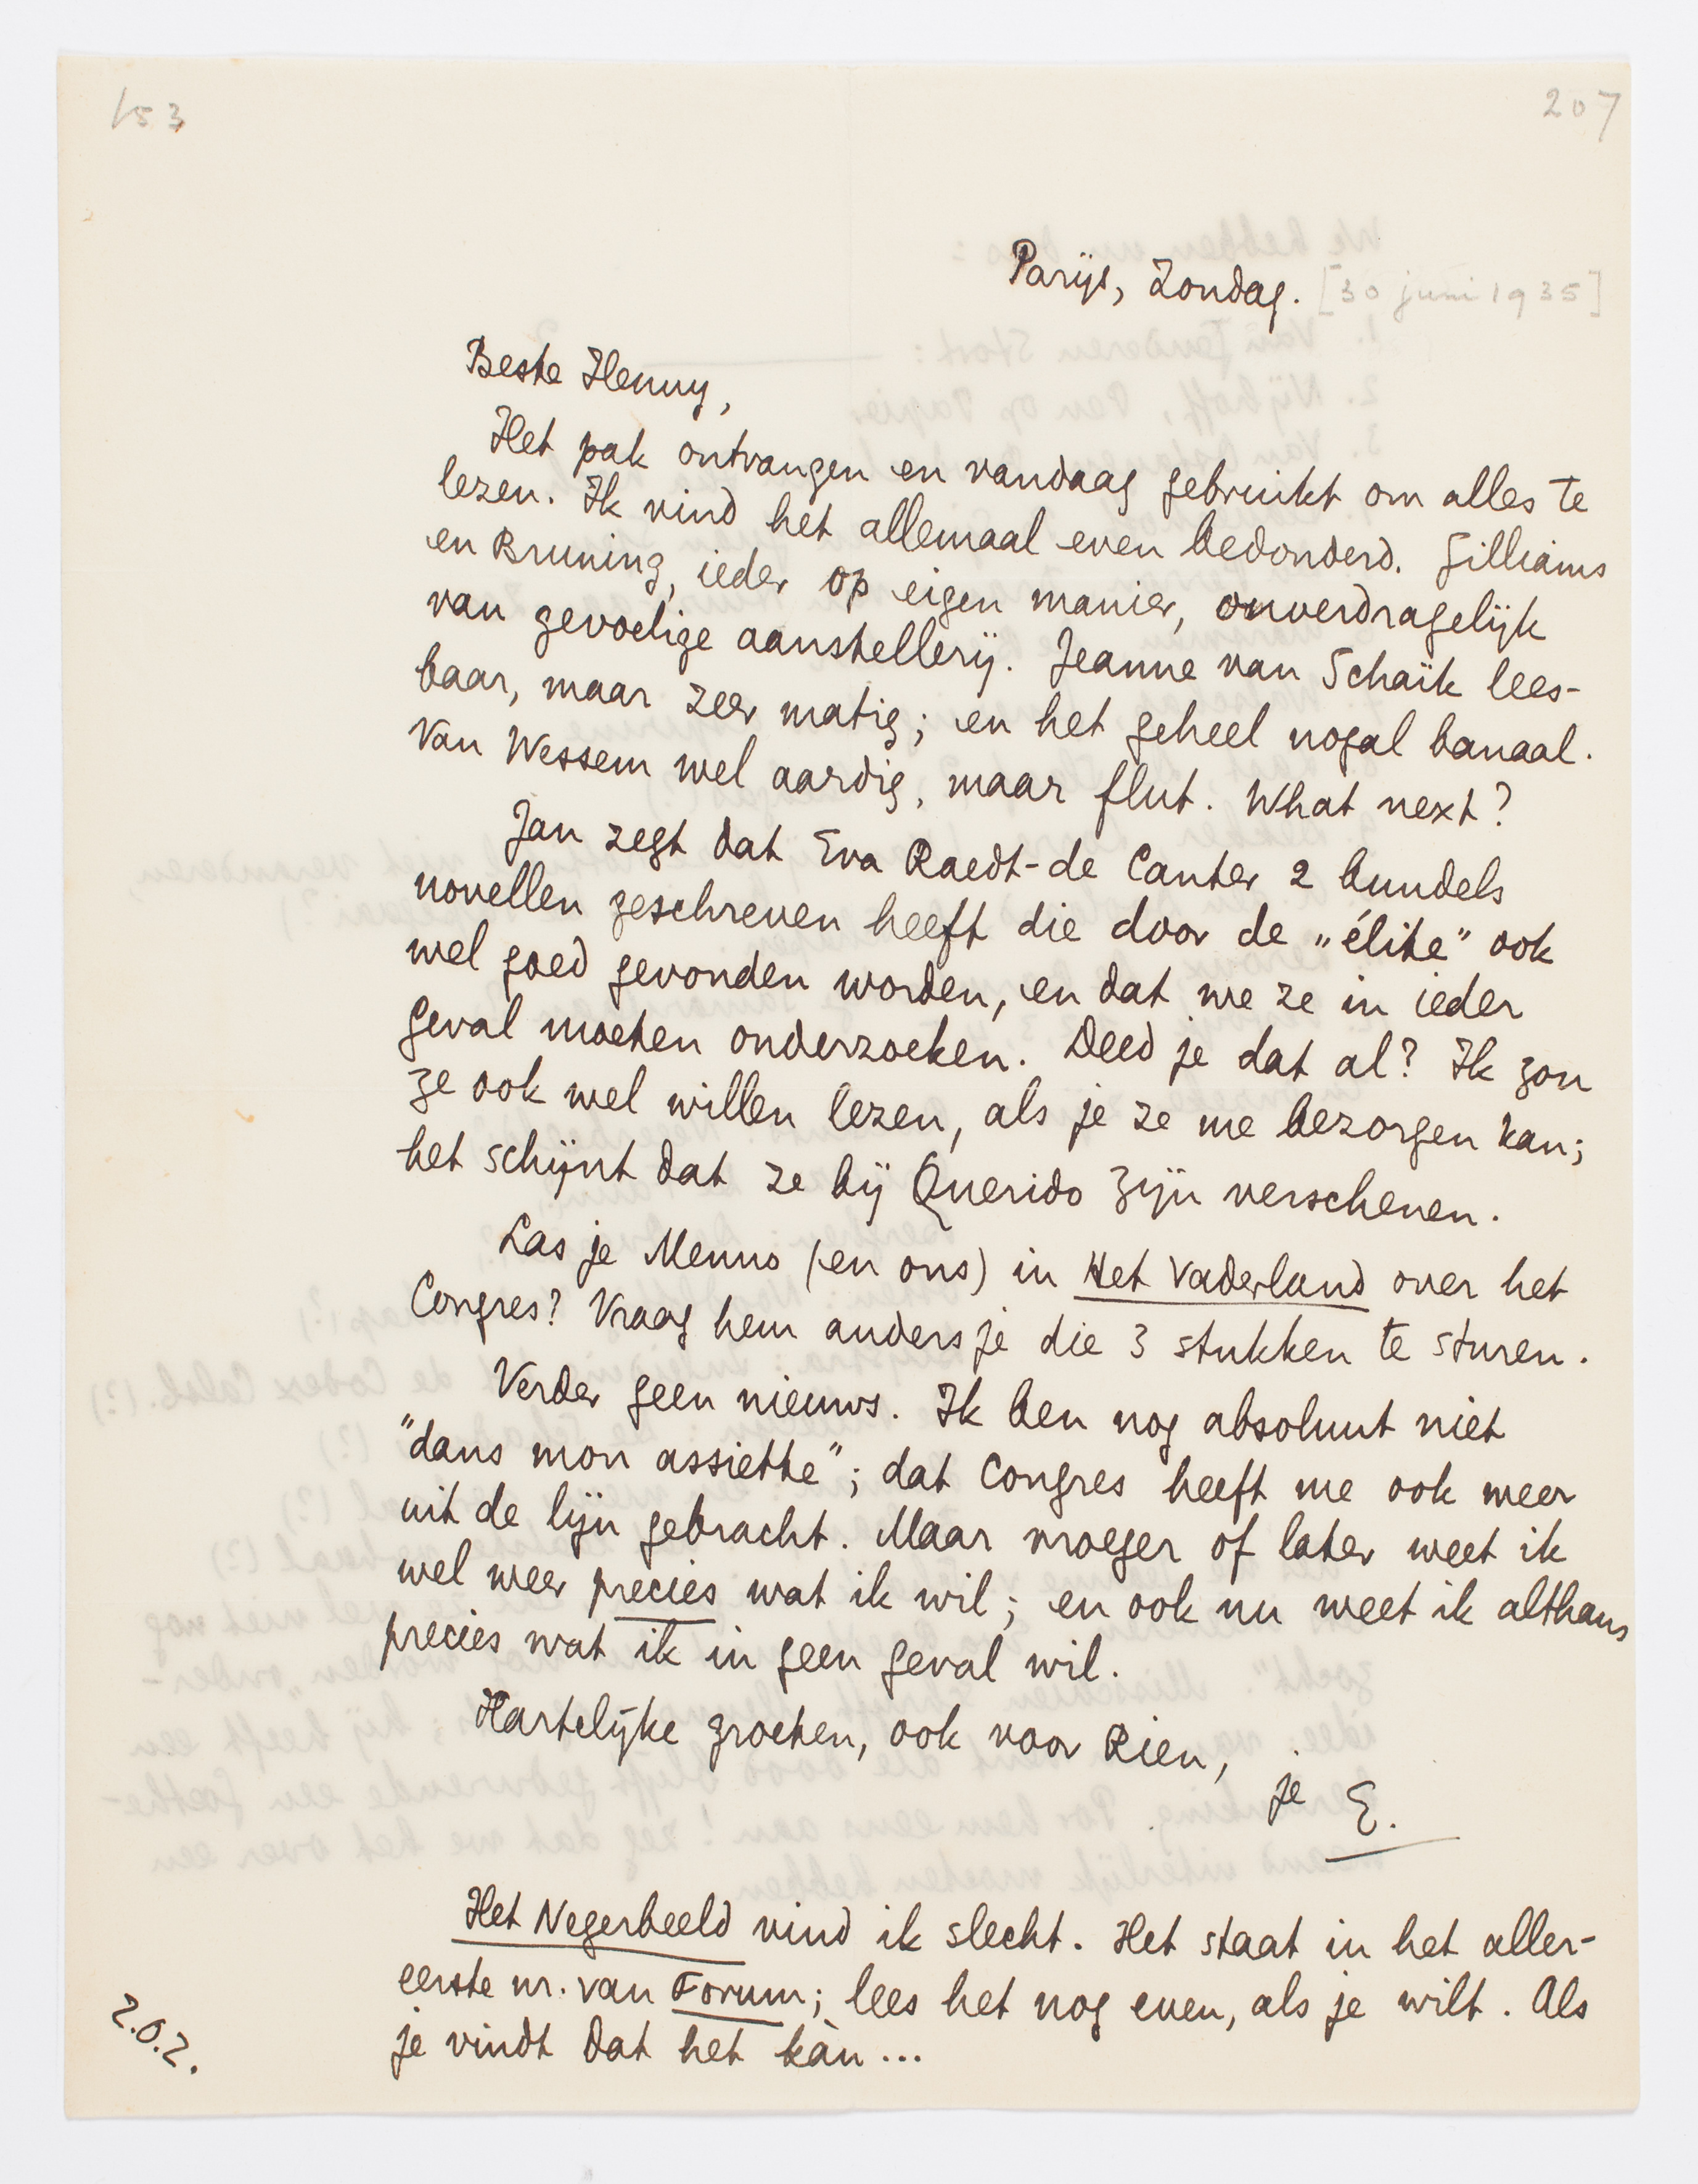 153
207
Parijs, Zondag. [30 juni 1935]
Beste Henny,
Het pak ontvangen en vandaag gebruikt om alles te
lezen. Ik vind het allemaal even bedonderd. Gilliams
en Bruning, ieder op eigen manier, onverdragelijk
van gevoelige aanstellerij. Jeanne van Schaik lees-
baar, maar zeer matig; en het geheel nogal banaal.
Van Wessem wel aardig, maar flut. What next?
Jan zegt dat Eva Raedt-de Canter 2 bundels
novellen geschreven heeft die door de „élite” ook
wel goed gevonden worden, en dat we ze in ieder
geval moeten onderzoeken. Deed je dat al? Ik zou
ze ook wel willen lezen, als je ze me bezorgen kan;
het schijnt dat ze bij Querido zijn verschenen.
Las je Menno (en ons) in Het Vaderland over het
Congres? Vraag hem anders je die 3 stukken te sturen.
Verder geen nieuws. Ik ben nog absoluut niet
"dans mon assiette"; dat Congres heeft me ook weer
uit de lijn gebracht. Maar vroeger of later weet ik
wel weer precies wat ik wil; en ook nu weet ik althans
precies wat ik in geen geval wil.
Hartelijke groeten, ook voor Rien,
je E.
Het Negerbeeld vind ik slecht. Het staat in het aller-
eerste nr. van Forum; lees het nog even, als je wilt. Als
je vindt dat het kàn...
Z.O.Z.